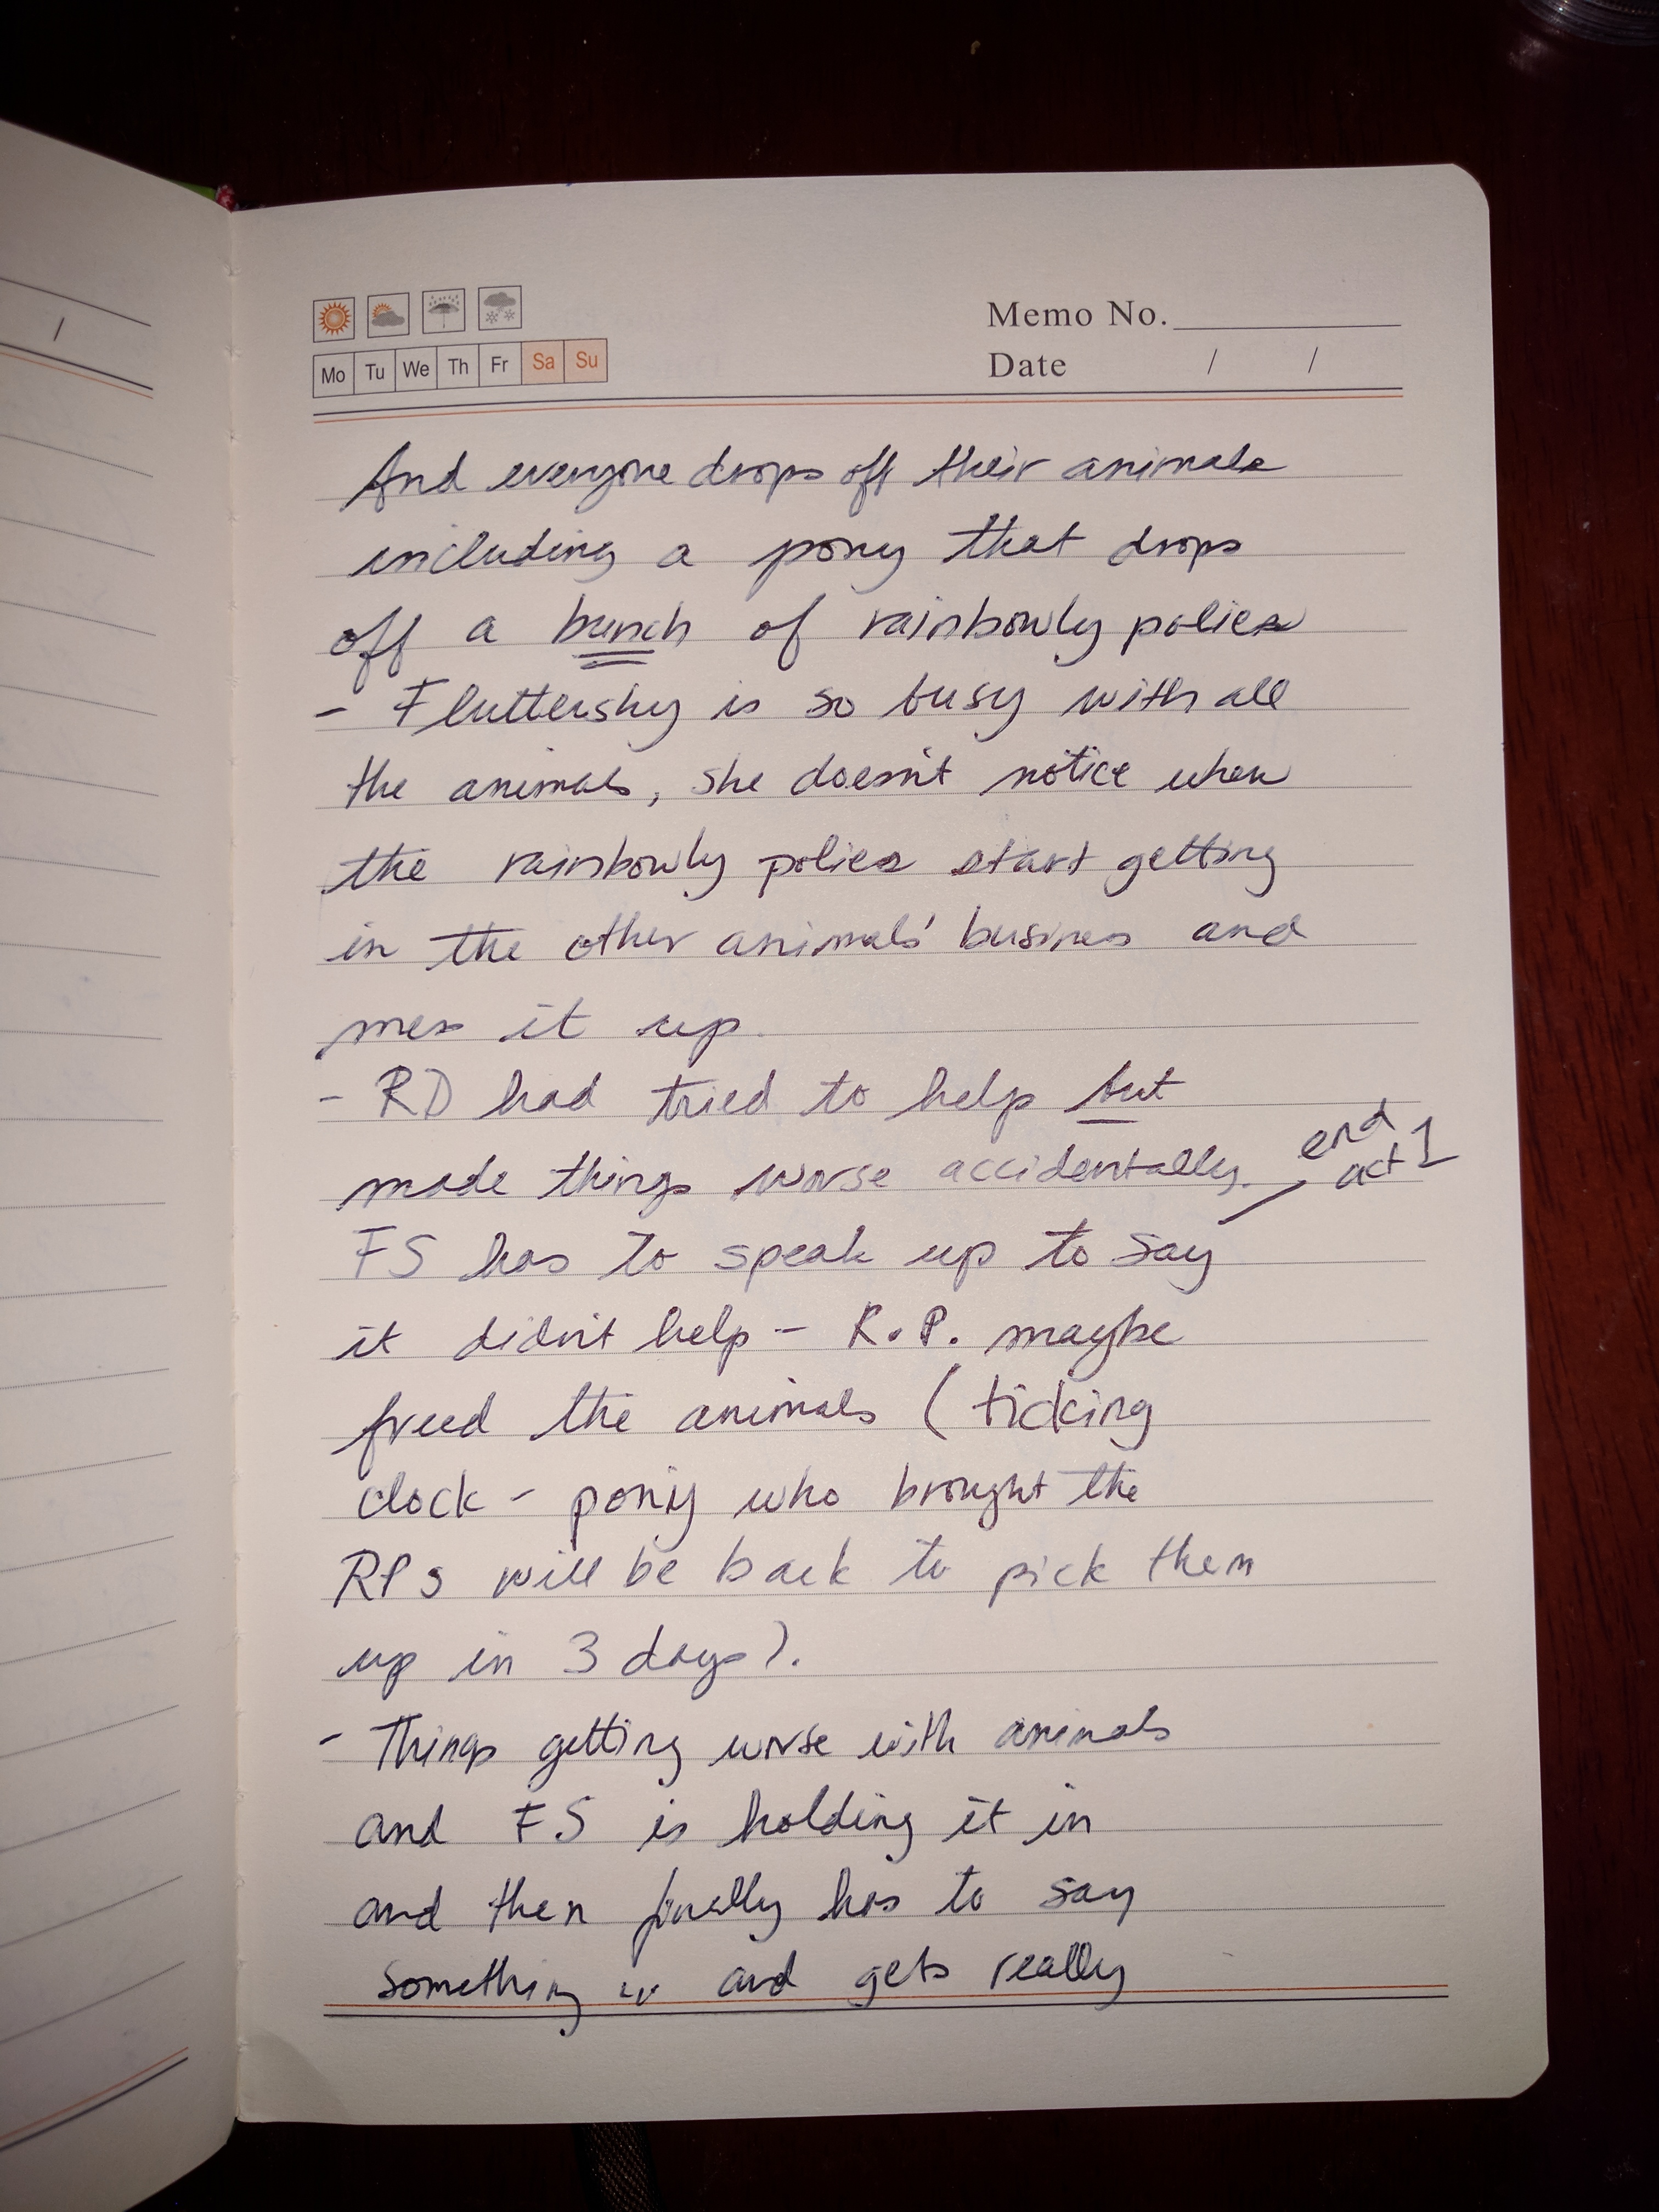 Mo Tu We Th Fr Sa Su
Memo No.
Date / /
/
And everyone drops off their animals
including a pony that drops
off a bunch of rainbowly polies
- Fluttershy is so busy with all
the animals, she doesn't notice when
the rainbowly polies start getting
in the other animals' business and
mess it up.
- RD had tried to help but
made things worse accidentally.
end
act 1
FS has to speak up to say
it didn't help - R.P. maybe
freed the animals (ticking
clock - pony who brought the
RPs will be back to pick them
up in 3 days).
- Things getting worse with animals
and FS is holding it in
and then finally has to say
something and gets really